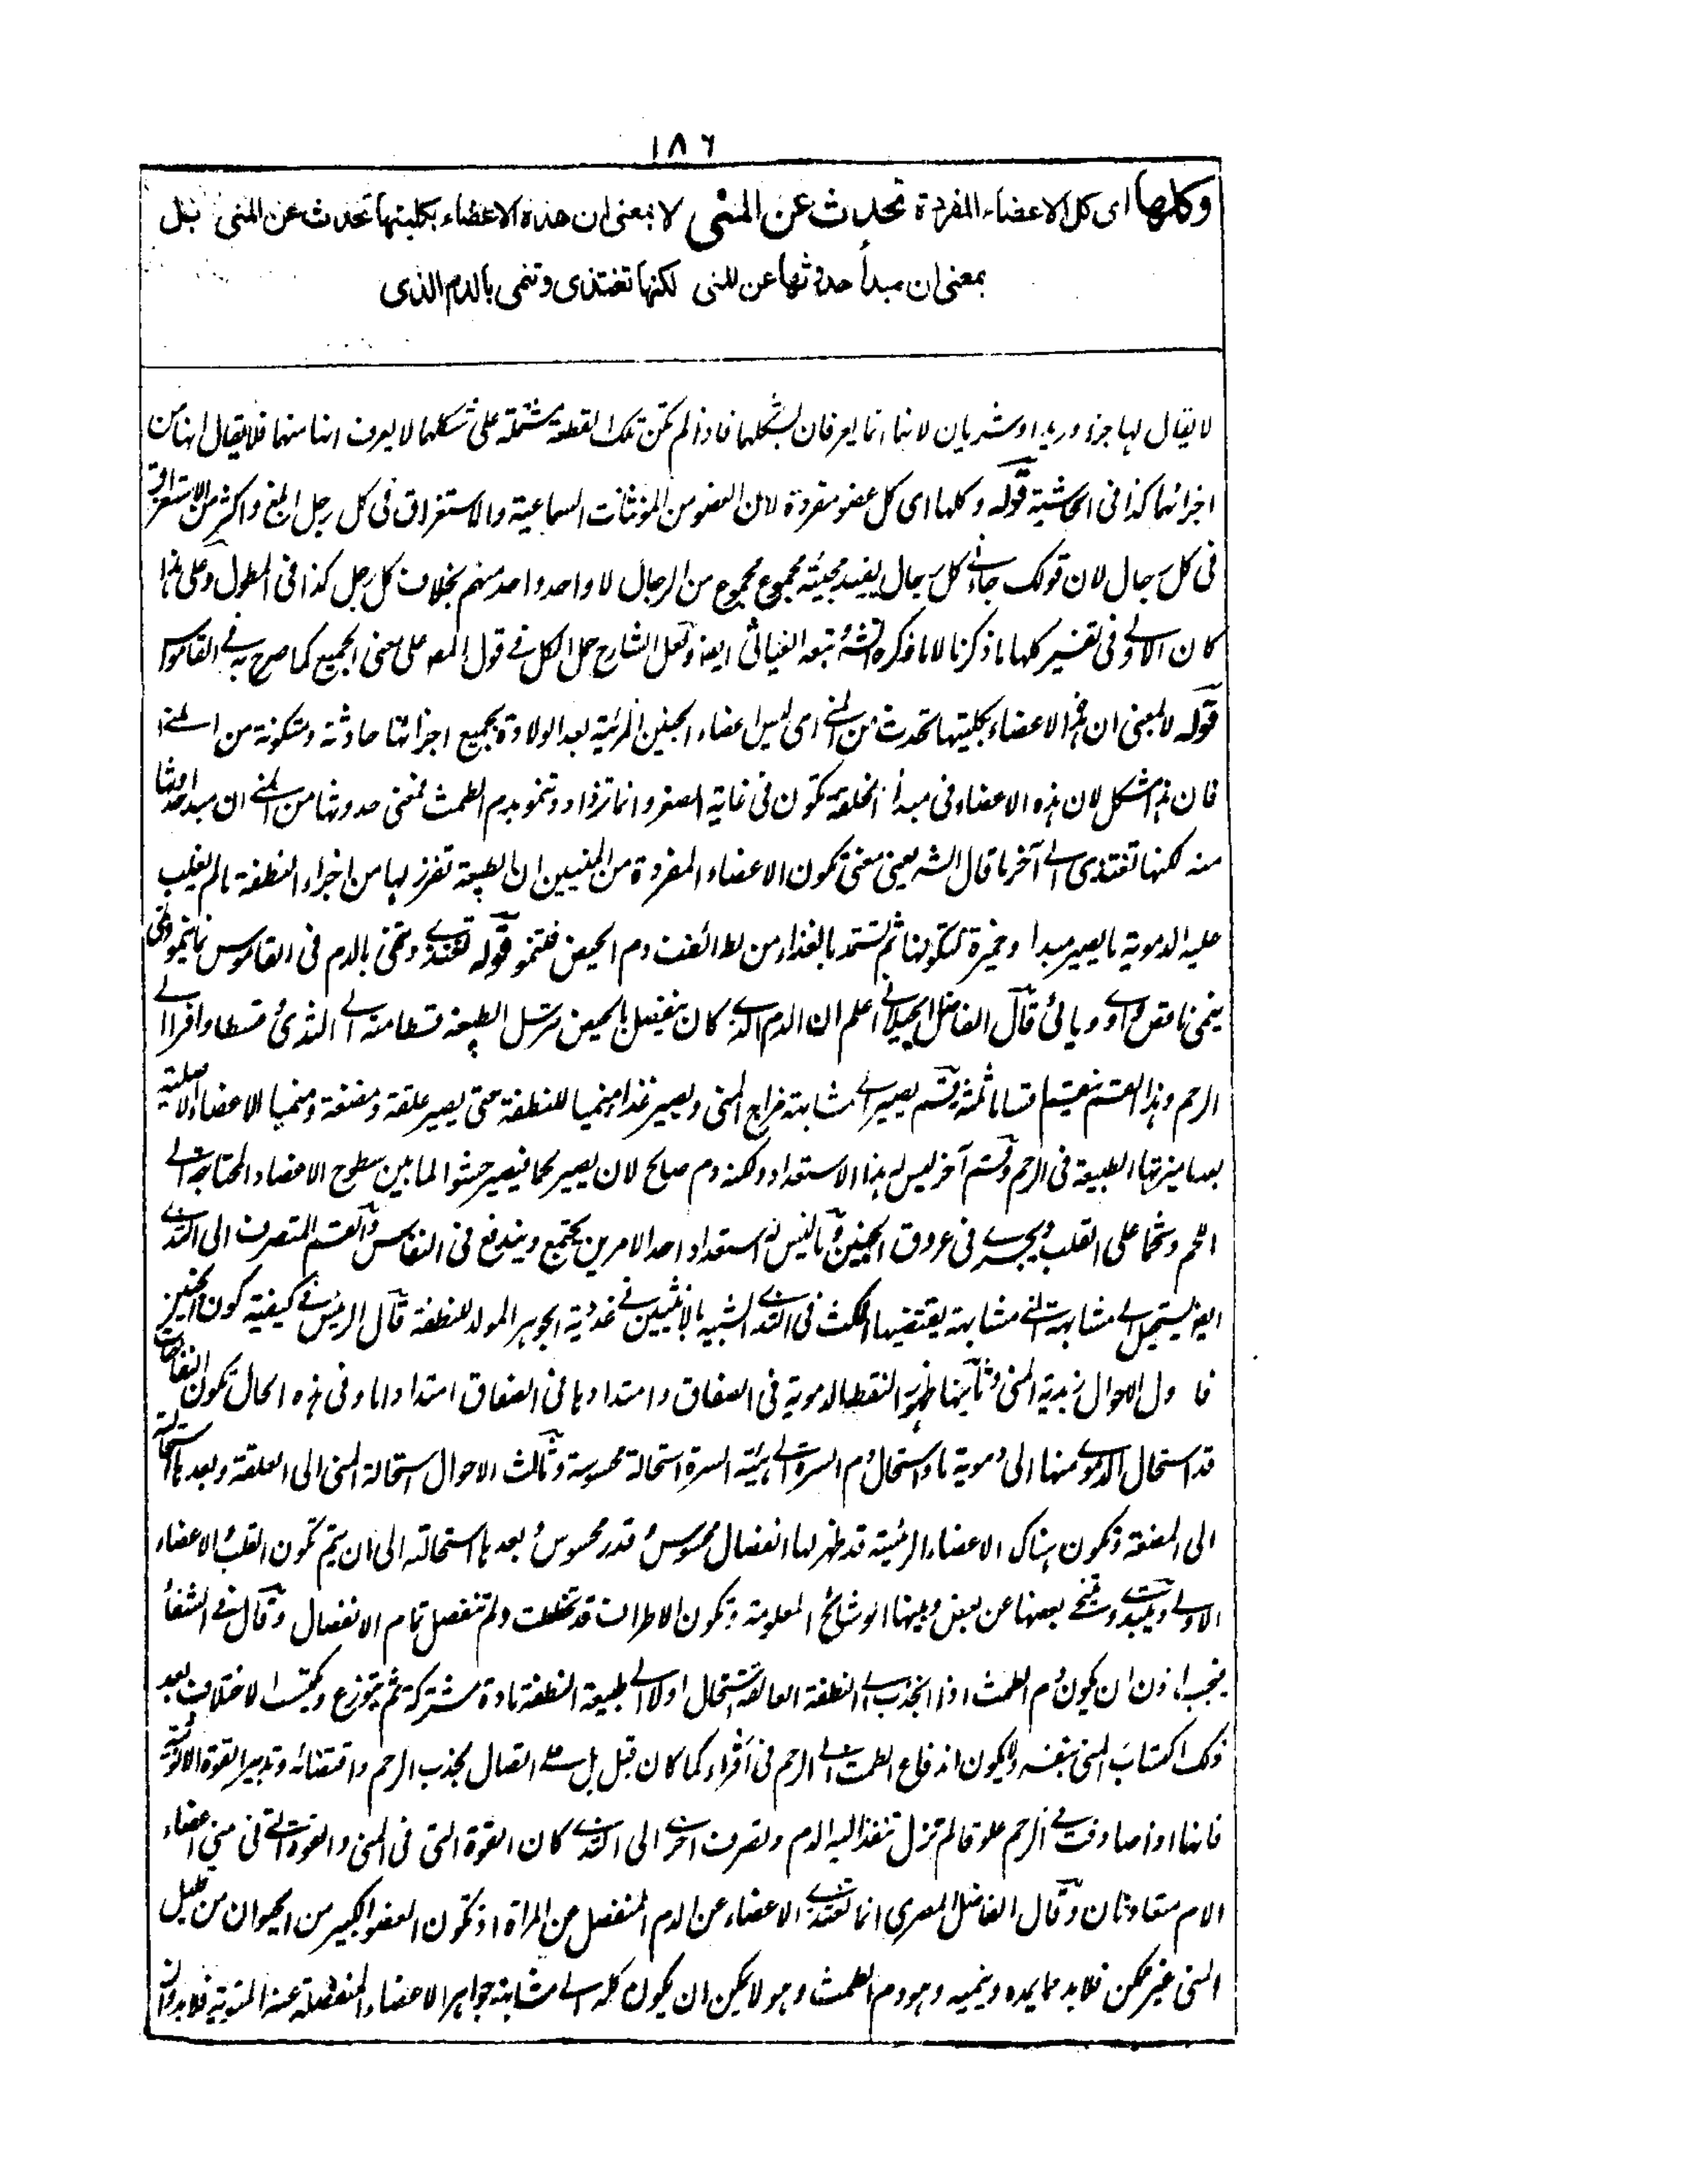 ١٨٦
وكلها اى كل الاعضاء المفردة تحدث عن المنى لا بمعنى ان هذه الاعضاء بكليتها تحدث عن المنى بل
بمعنى ان مبدأ حدوثها عن المنى لكنها تغتذى وتنمى بالدم الذى
لا يقال لها جزء وريد او شريان لانها انما يعرفان بشكلها فاذا لم تكن تلك القطعة مشتملة على شكلها لا يعرف انها منهما فلا يقال انها من
اجزائهما كذا فى الحاشية قوله وكلها اى كل عضو مفردة لان العضو من المؤنثات السماعية والاستغراق فى كل رجل ابلغ واكثر من الاستغراق
فى كل رجال لان قولك جاءنى كل رجال يفيد مجيئة مجموع مجموع من الرجال لا واحد واحد منهم بخلاف كل رجل كذا فى المطول وعلى هذا
كان الاولى فى تفسير كلها ما ذكرنا لا ما ذكره الشه تبعه الغياثى ايضا ولعل الشارح حمل الكل فى قول المصـ على معنى الجميع كما صرح به فى القاموس
قوله لا بمعنى ان هذه الاعضاء بكليتها تحدث من المنى اى ليس اعضاء الجنين المرئية بعد الولادة بجميع اجزائها حادثة ومتكونة من المنى
فان هذا مشكل لان هذه الاعضاء فى مبدأ الخلقة تكون فى غاية الصغر وانما تزداد وتنمو بدم الطمث فمعنى حدوثها من المنى ان مبدا حدوثها
منه لكنها تغتذى الى آخر ما قال الشه يعنى معنى تكون الاعضاء المفردة من المنيين ان الطبيعة تفرز لها من اجزاء النطفة ما لم يغلب
عليه الدموية ما يصير مبدا وخميرة لتكونها ثم تستمد بالغذاء من لطائف دم الحيض فتنمو قوله تغتذى وتنمى بالدم فى القاموس نما ينمو ونمى
ينمى ناقص واوى ويائى قال الفاضل الجيلانى اعلم ان الدم الذى كان ينفصل بالحيض ترسل الطبيعة قسطا منه الى الثدى وقسطا وافرا الى
الرحم وهذا القسم ينقسم اقساما ثلثة قسم يصير الى مشابهة مزاج المنى ويصير غذاء منميا للنطفة حتى يصير علقة ومضغة ومنميا للاعضاء الاصلية
بعد ما ميزتها الطبيعة فى الرحم وقسم آخر ليس له هذا الاستعداد ولكنه دم صالح لان يصير لحما فيصير حشوا لما بين سطوح الاعضاء المحتاجة الى
اللحم وشحما على القلب ويجرى فى عروق الجنين وثالث ليس له استعداد احد الامرين يجتمع ويندفع فى النفاس والقسم المنصرف الى الثدى
ايضا يستحيل الى مشابهة المنى مشابهة يقتضيها المكث فى الثدى الشبيه بالانثيين فى غددية الجوهر المولد للنطفة قال الرئيس فى كيفية كون الجنين
فاول الاحوال زبدية المنى وثانيها ظهور النقط الدموية فى الصفاق وامتدادها فى الصفاق امتدادا ما وفى هذه الحال تكون النفاخات
قد استحال الدموى منها الى دموية ما واستحال دم السرة الى هيئة السرة استحالة محسوسة وثالث الاحوال استحالة المنى الى العلقة وبعدها استحالته
الى المضغة وتكون هناك الاعضاء الرئيسة قد ظهر لها انفصال محسوس وقدر محسوس وبعدها استحالته الى ان يتم تكون القلب والاعضاء
الاولى وتبتدى وتتنحى بعضها عن بعض ويليها الوشائج المعلومة وتكون الاطراف قد تخططت ولم تنفصل تمام الانفصال وقال فى الشفاء
فيجب اذن ان يكون دم الطمث اذا انجذب الى النطفة العالقة استحال اولا الى طبيعة النطفة مادة مشتركة ثم يتوزع ويكتسب الاختلاف بعد
ذلك اكتساب المنى بنفسه ولا يكون اندفاع الطمث الى الرحم فى أقراء كما كان قبل بل على اتصال بجذب الرحم واقتضائه وتدبير القوة
فانها اذا صادفت فى الرحم علوقا لم تزل تنفذ اليه الدم وتصرف آخر الى الثدى كان القوة التى فى المنى والقوة التى فى اعضاء
الام متعاونان وقال الفاضل المصرى انما تغتذى الاعضاء عن الدم المنفصل عن المراة اذ تكون العضو الكبير من الحيوان من قليل
المنى غير ممكن فلا بد مما يمده وينميه وهو دم الطمث وهو لا يمكن ان يكون كله الى مشابهة جواهر الاعضاء المنفصلة عند المنوية فلا بد وان